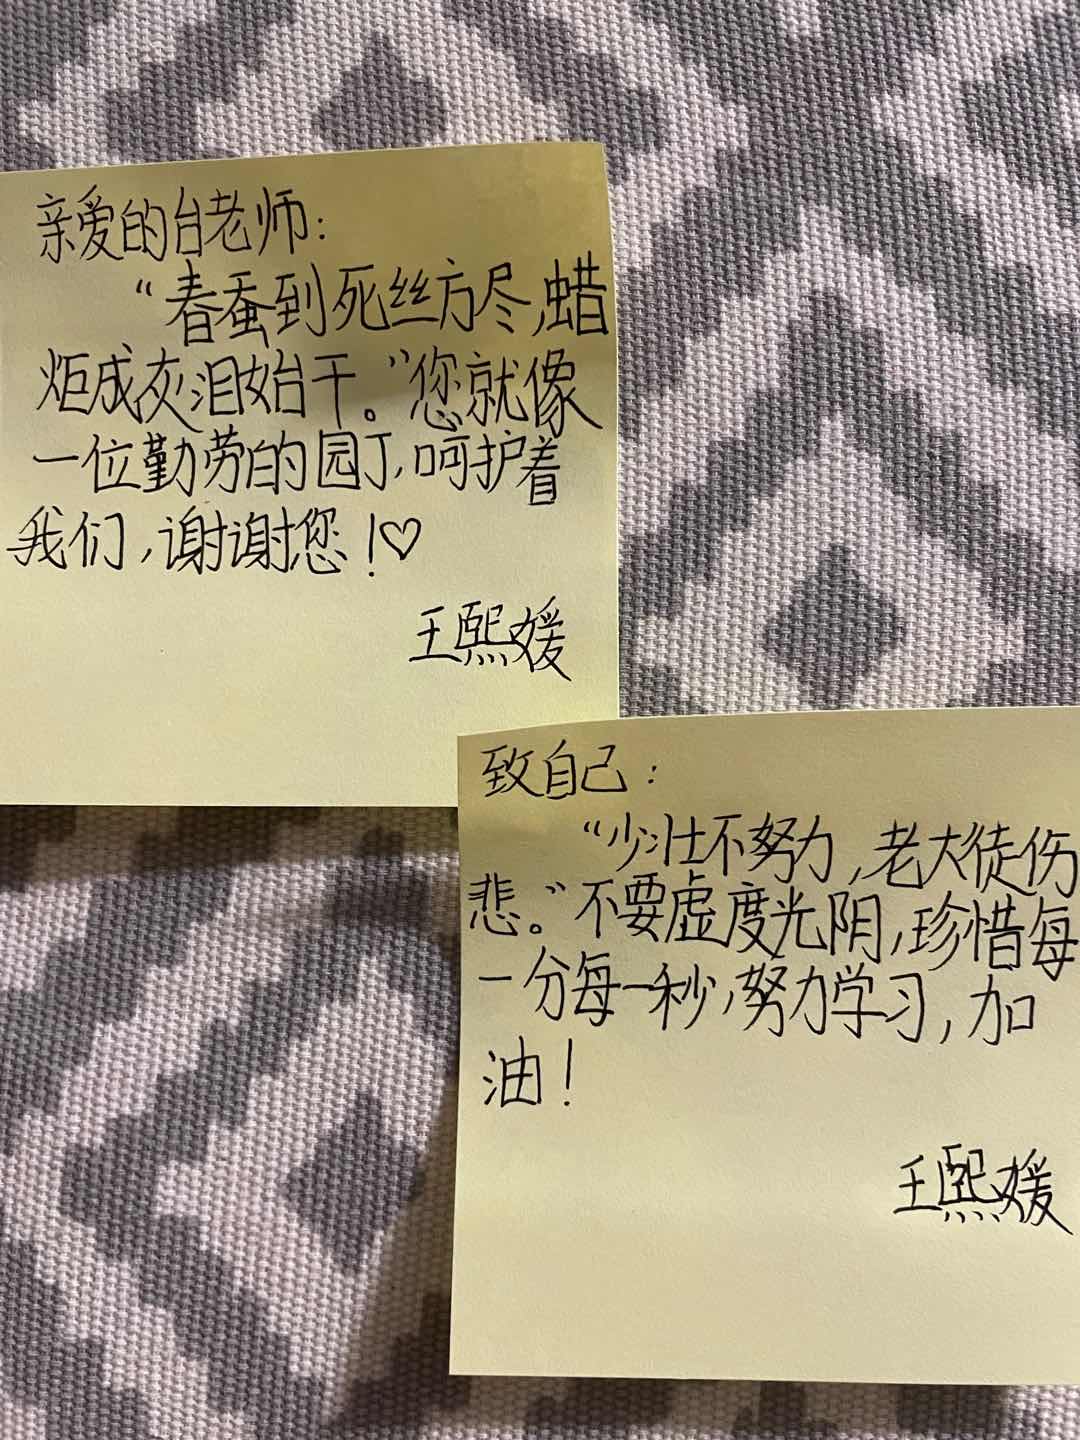 亲爱的台老师：
“春蚕到死丝方尽，蜡
炬成灰泪始干。”您就像
一位勤劳的园丁，呵护着
我们，谢谢您！♡
王熙媛
致自己：
“少壮不努力，老大徒伤
悲。”不要虚度光阴，珍惜每
一分每一秒，努力学习，加
油！
王熙媛